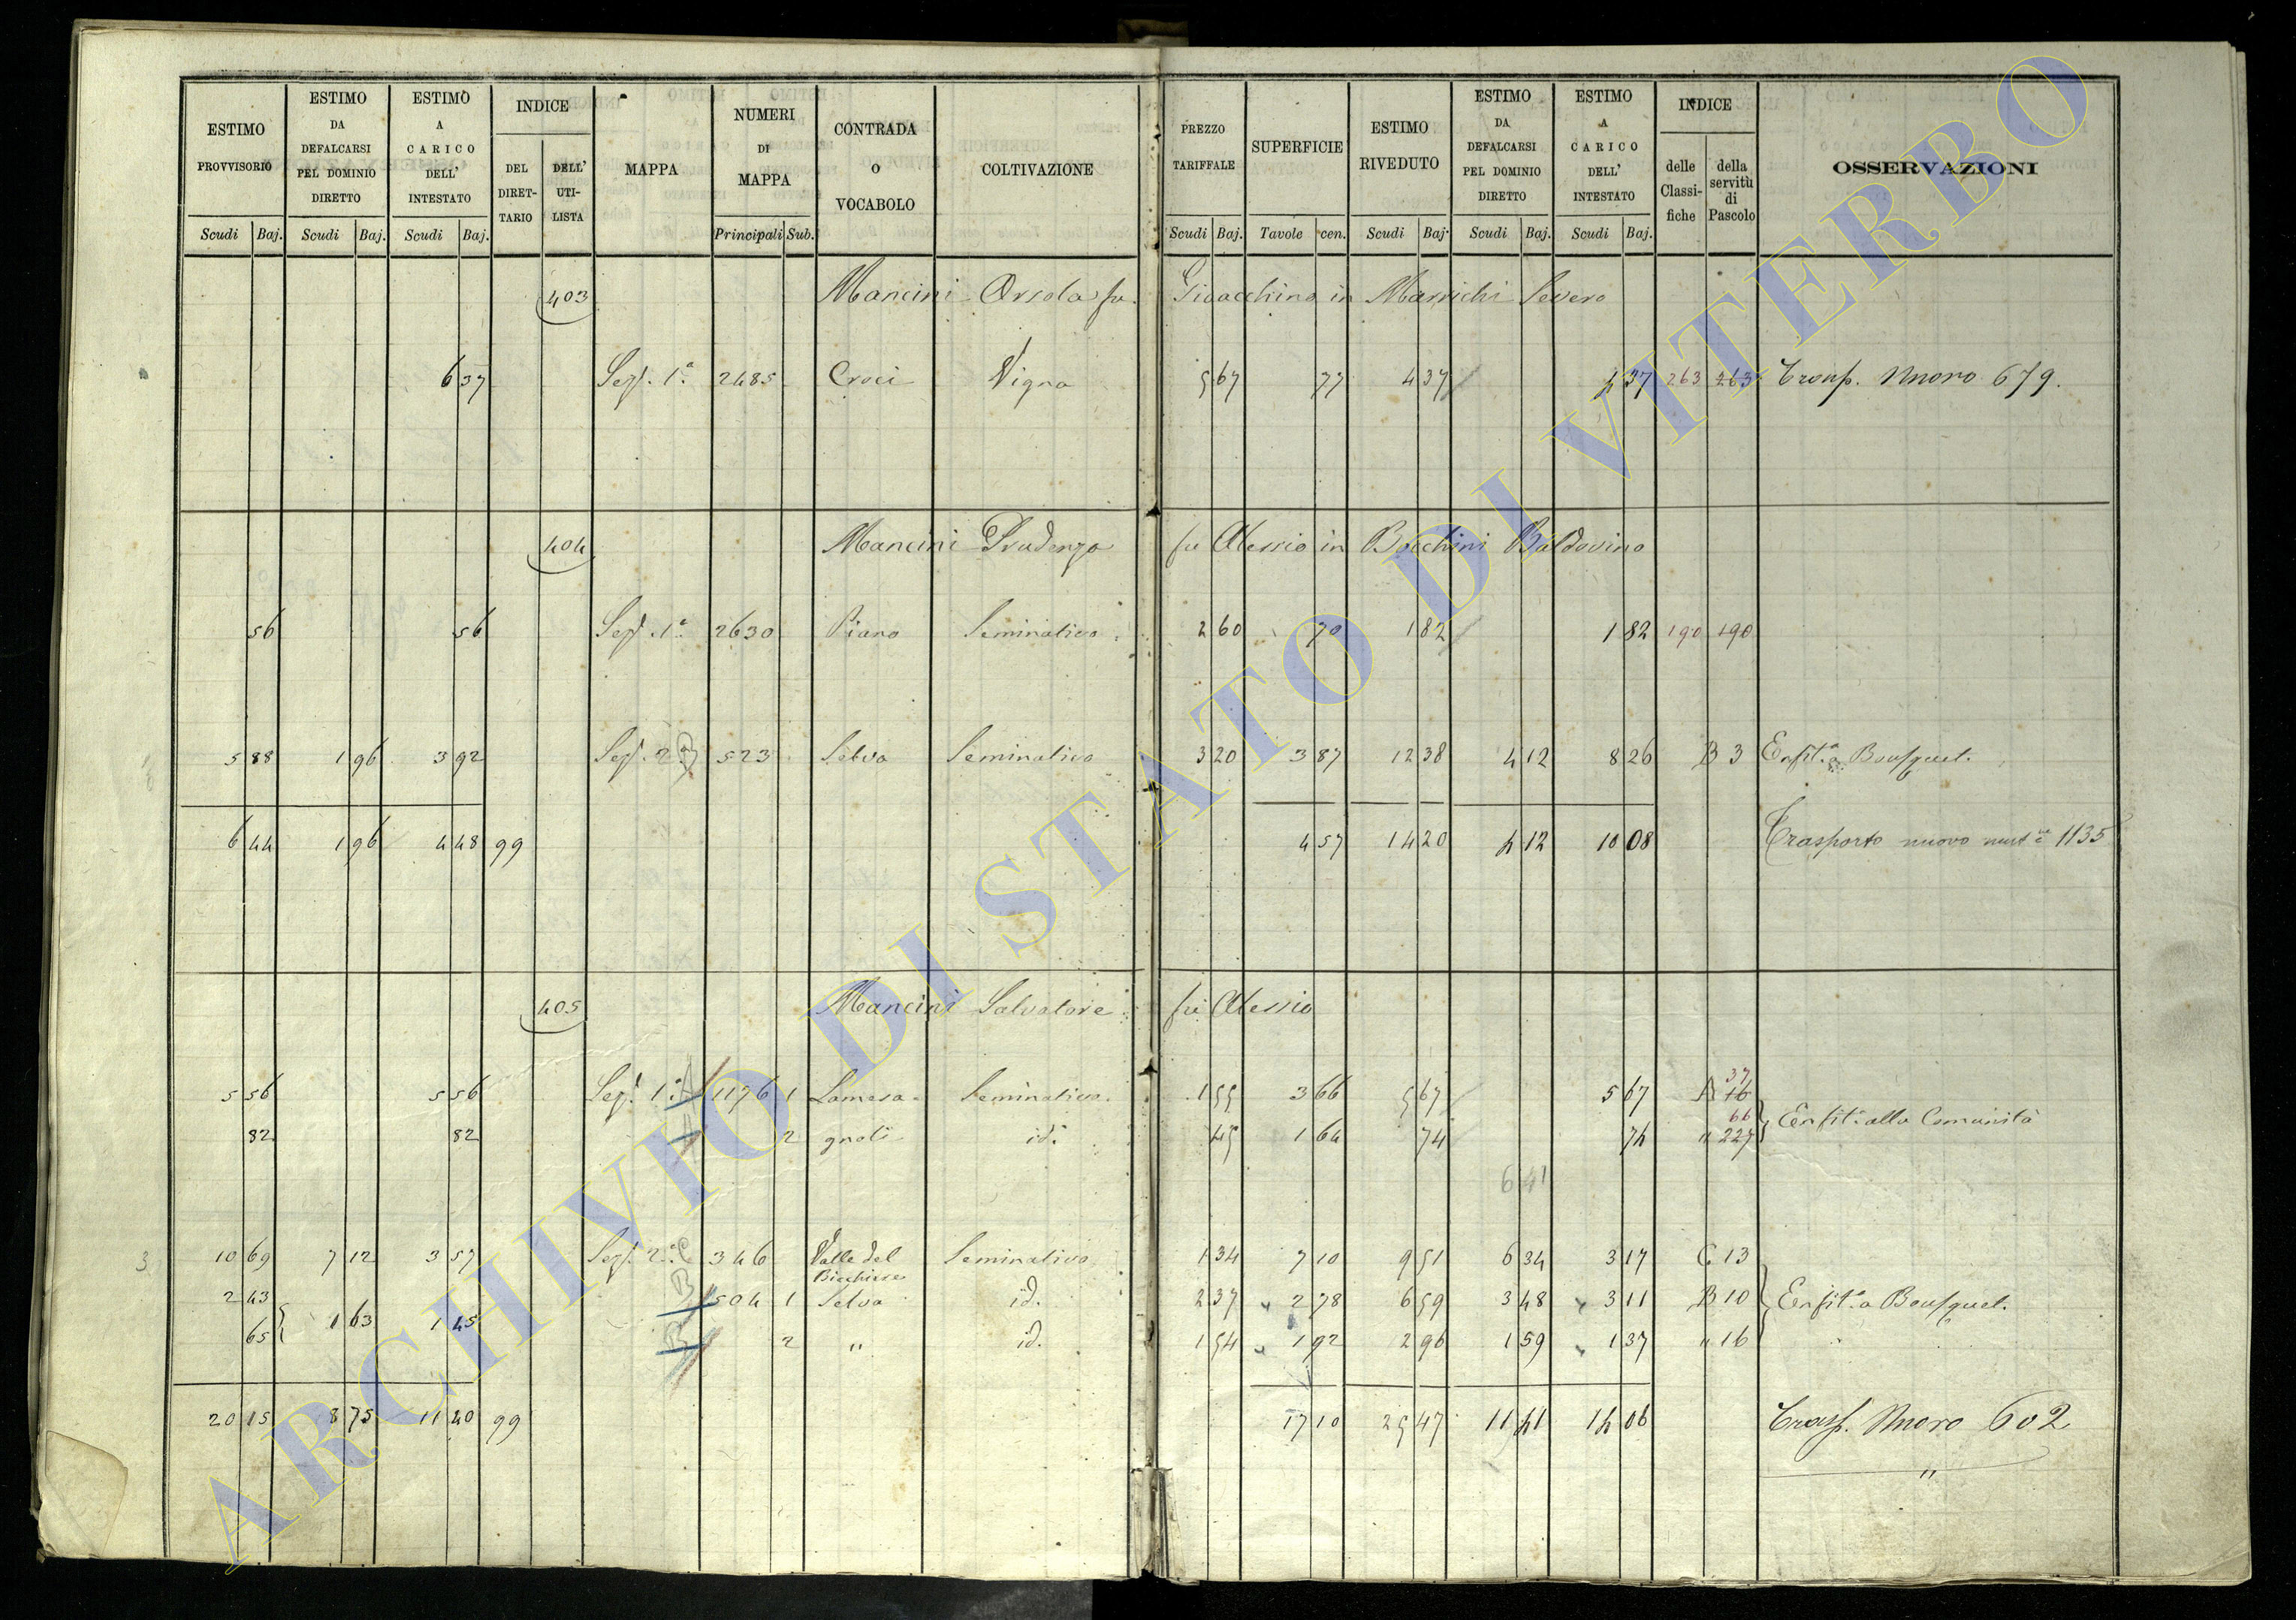 ESTIMO PROVVISORIO | ESTIMO DA DEFALCARSI PEL DOMINIO DIRETTO | ESTIMO A CARICO DELL' INTESTATO | INDICE DEL DIRET-TARIO | DELL' UTI-LISTA | MAPPA | NUMERI DI MAPPA | CONTRADA O VOCABOLO | COLTIVAZIONE | PREZZO TARIFFALE | SUPERFICIE | ESTIMO RIVEDUTO | ESTIMO DA DEFALCARSI PEL DOMINIO DIRETTO | ESTIMO A CARICO DELL' INTESTATO | INDICE delle Classi-fiche | della servitù di Pascolo | OSSERVAZIONI
Scudi Baj. | Scudi Baj. | Scudi Baj. | Principali Sub. | Scudi Baj. | Tavole cen. | Scudi Baj. | Scudi Baj. | Scudi Baj.
403 Mancini Orsola fu Gioacchino in Marrichi Severo
6 37 Sez. 1ª 2485 Croci Vigna 5 67 77 4 37 4 37 263 263 Trasp. Nuovo 679.
404 Mancini Prudenza fu Alessio in Bocchini Baldovino
56 56 Sez. 1ª 2630 Piano Seminativo 2 60 70 1 82 1 82 190 190
5 88 1 96 3 92 Sez. 2ª 523 Selva Seminativo 3 20 3 87 12 38 4 12 8 26 B 3 Enfit. a Bousquet.
6 44 1 96 4 48 99 4 57 14 20 4 12 10 08 Trasporto nuovo 1135
405 Mancini Salvatore fu Alessio
5 56 5 56 Sez. 1ª 1176 1 Lamesa- Seminativo 1 55 3 66 5 67 5 67 37 16
82 82 2 gnoli id. 45 1 64 74 74 66 " 227 Enfit. alla Comunità
6 41
3 10 69 7 12 3 57 Sez. 2ª C 346 Valle del Bicchiere Seminativo 1 34 7 10 9 51 6 34 3 17 C 13
2 43 B 504 1 Selva id. 2 37 2 78 6 59 3 48 3 11 B 10 Enfit. a Bousquet.
65 1 63 1 45 B 2 " id. 1 54 1 92 2 96 1 59 1 37 " 16
20 15 8 75 11 40 99 17 10 25 47 11 41 14 06 Trasp. Nuovo 602
"
ARCHIVIO DI STATO DI VITERBO